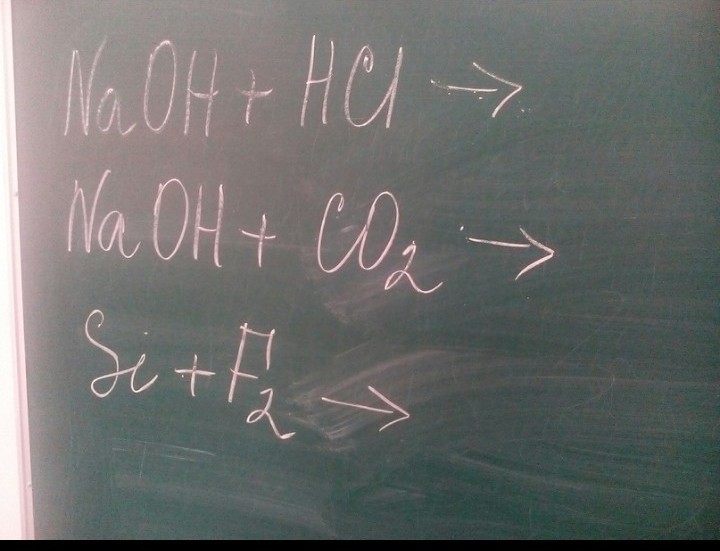 NaOH + HCl →
NaOH + CO₂ →
Si + F₂ →